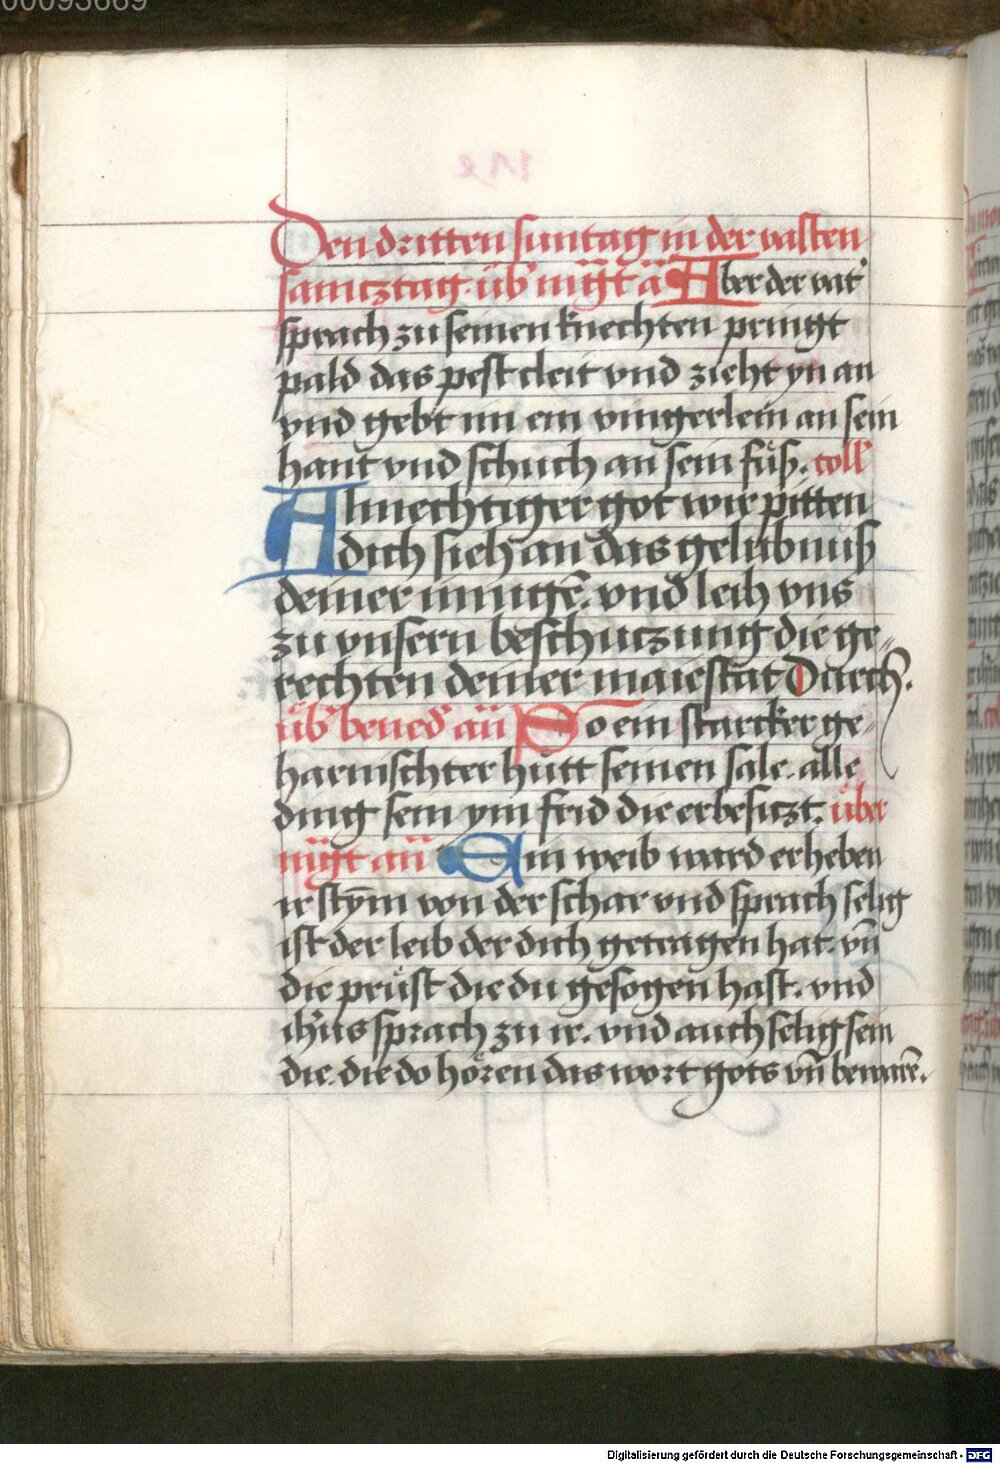 00093669
Den dritten suntag in der vasten
samtztag. üb' mgt ā Aber der vat'
sprach zu seinen knechten pringt
pald das pest cleit vnd zieht yn an
vnd gebt im ein vingerlein an sein
hant vnd schuch an sein füß. coll'
Almechtiger got wir pitten
dich sieh an das gelübnuß
deiner innigē. vnd leih vns
zu vnsern beschutzung die ge„
rechten deiner maiestat Durch.
üb' bened' añ So ein starcker ge„
harnischter hütt seinen sale. alle
ding sein ym frid die er besitzt. über
mgt añ Ein weib ward erheben
ir stȳm von der schar vnd sprach selig
ist der leib der dich getragen hat. vñ
die prüst die du gesogen hast. vnd
ihus sprach zu ir. vnd auch selig sein
die. die do hören das wort gots vñ bewarē.
Digitalisierung gefördert durch die Deutsche Forschungsgemeinschaft - DFG